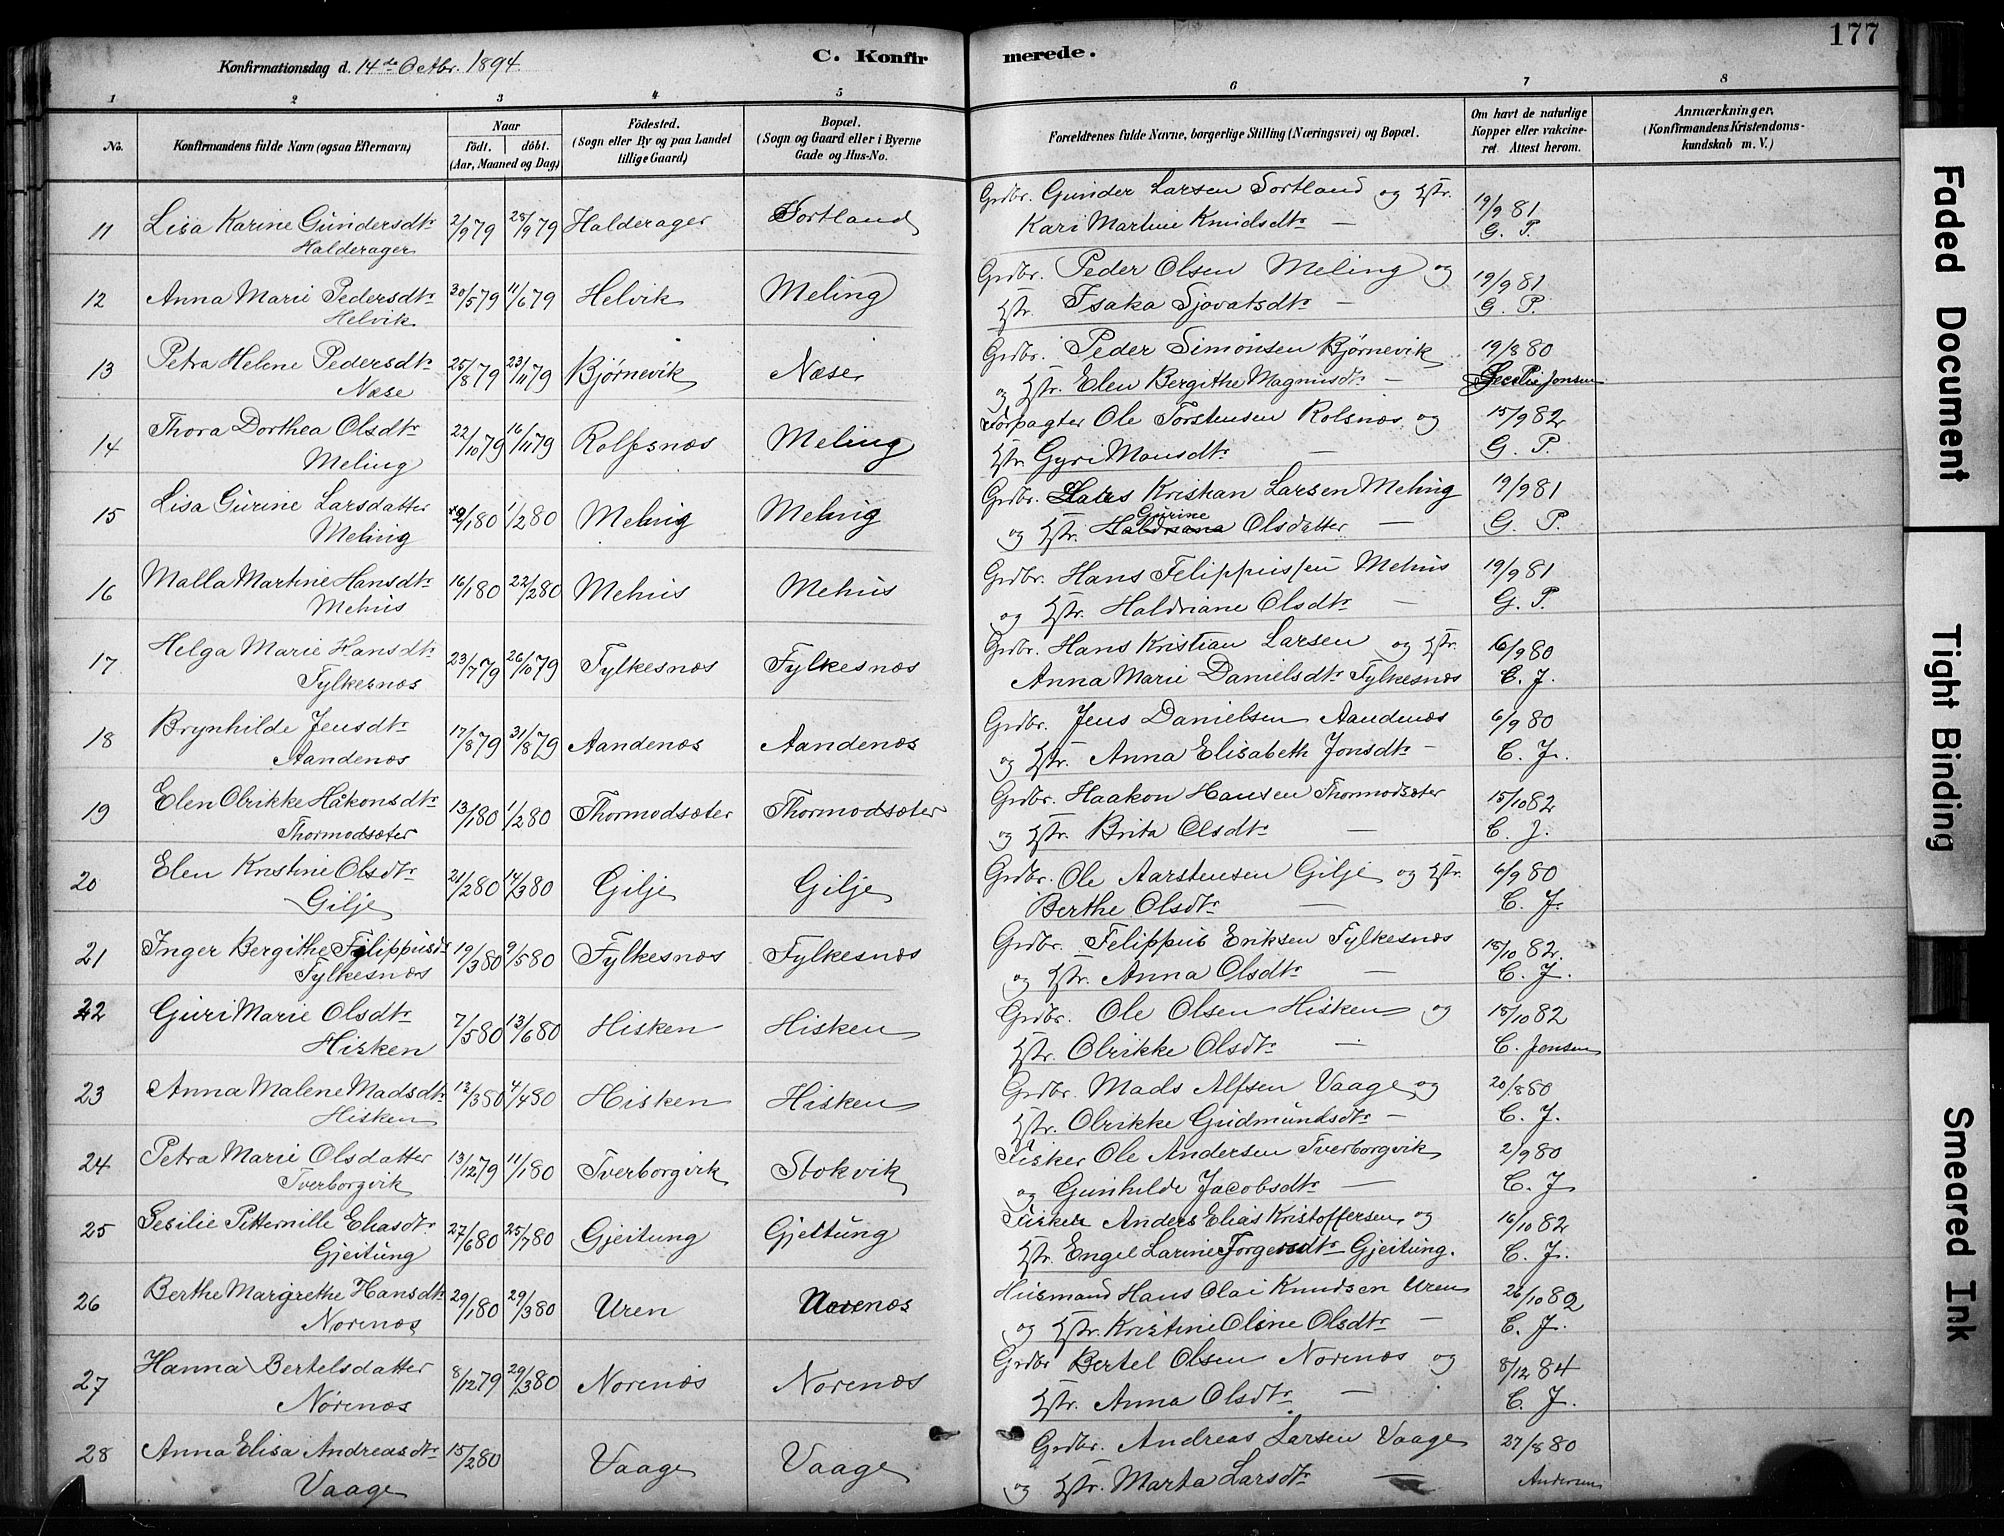 177
Konfirmationsdag d. 14de Octbr. 1894.
C. Konfirmerede.
1 2 3 4 5 6 7 8
No.
Konfirmandens fulde Navn (ogsaa Efternavn)
Naar
födt. döbt.
(Aar, Maaned og Dag)
Födested.
(Sogn eller By og paa Landet
tillige Gaard)
Bopæl.
(Sogn og Gaard eller i Byerne
Gade og Hus-No.
Forældrenes fulde Navne, borgerlige Stilling (Næringsvei) og Bopæl.
Om havt de naturlige
Kopper eller vakcine-
ret. Attest herom.
Anmærkninger,
(Konfirmandens Kristendoms-
kundskab m. V.)
11 Lisa Karine Gundersdtr 2/9 79 28/9 79 Halderager Sortland Grdbr. Gunder Larsen Sortland og Hstr. 19/9 81
Halderager Kari Martine Knudsdtr — G. P.
12 Anna Marie Pedersdtr 30/5 79 11/6 79 Helvik Meling Grdbr. Peder Olsen Meling og 19/9 81
Helvik Hstr. Isaka Sjovatsdtr — G. P.
13 Petra Helene Pedersdtr 25/8 79 23/11 79 Bjørnevik Næse Grdbr. Peder Simonsen Bjørnevik 19/8 80
Næse og Hstr. Elen Bergithe Magnusdtr — Cecilie Jonsen
14 Thora Dorthea Olsdtr 22/10 79 16/11 79 Rolfsnæs Meling Forpagter Ole Torstensen Rolsnæs og 15/9 82
Meling Hstr. Gyri Monsdtr — G. P.
15 Lisa Gurine Larsdatter 2/1 80 1/2 80 Meling Meling Grdbr. Lars Kristian Larsen Meling 19/9 81
Meling og Hstr. Haldriana Gurine Olsdatter — G. P.
16 Malla Martine Hansdtr 16/1 80 22/2 80 Mehus Mehus Grdbr. Hans Felippussen Mehus 19/9 81
Mehus og Hstr. Haldriane Olsdtr — G. P.
17 Helga Marie Hansdtr 23/7 79 26/10 79 Fylkesnæs Fylkesnæs Grdbr. Hans Kristian Larsen og Hstr. 6/9 80
Fylkesnæs Anna Marie Danielsdtr Fylkesnæs C. J.
18 Brynhilde Jensdtr 17/8 79 31/8 79 Aandenæs Aandenæs Grdbr. Jens Danielsen Aandenæs 6/9 80
Aandenæs og Hstr. Anna Elisabeth Jonsdtr — C. J.
19 Elen Olrikke Håkonsdtr 13/1 80 1/2 80 Thormodsæter Thormodsæter Grdbr. Haakon Hansen Thormodsæter 15/10 82
Thormodsæter og Hstr. Brita Olsdtr — C. J.
20 Elen Kristine Olsdtr 21/2 80 14/3 80 Gilje Gilje Grdbr. Ole Aarstensen Gilje og Hstr. 6/9 80
Gilje Berthe Olsdtr — C. J.
21 Inger Bergithe Filippusdtr 19/3 80 9/5 80 Fylkesnæs Fylkesnæs Grdbr. Felippus Eriksen Fylkesnæs 15/10 82
Fylkesnæs og Hstr. Anna Olsdtr — C. J.
22 Guri Marie Olsdtr 7/5 80 13/6 80 Hisken Hisken Grdbr. Ole Olsen Hisken og 15/10 82
Hisken Hstr. Olrikke Olsdtr — C. Jonsen
23 Anna Malene Madsdtr 12/3 80 4/4 80 Hisken Hisken Grdbr. Mads Alfsen Vaage og 20/8 80
Hisken Hstr. Olrikke Gudmundsdtr — C. J.
24 Petra Marie Olsdatter 13/12 79 11/1 80 Tverborgvik Stokvik Fisker Ole Andersen Tverborgvik 2/9 80
Tverborgvik og Gunhilde Jacobsdtr — C. J
25 Sesilie Pitternille Eliasdtr. 27/6 80 25/7 80 Gjeitung Gjeitung Fisker Anders Elias Kristoffersen og 16/10 82
Gjeitung Hstr. Engel Larine Torgersdtr Gjeitung. C. J.
26 Berthe Margrethe Hansdtr 29/1 80 29/3 80 Uren Norenæs Husmand Hans Olai Knudsen Uren 26/10 82
Norenæs og Hstr. Kristine Oline Olsdtr — C. J.
27 Hanna Bertelsdatter 8/12 79 29/3 80 Norenæs Norenæs Grdbr Bertel Olsen Norenæs og 8/12 84
Norenæs Hstr. Anna Olsdtr — C. J.
28 Anna Elisa Andreasdtr 15/2 80 Vaage Vaage Grdbr. Andreas Larsen Vaage 27/8 80
Vaage og Hstr. Marta Larsdtr — Andersen
Faded Document
Tight Binding
Smeared Ink